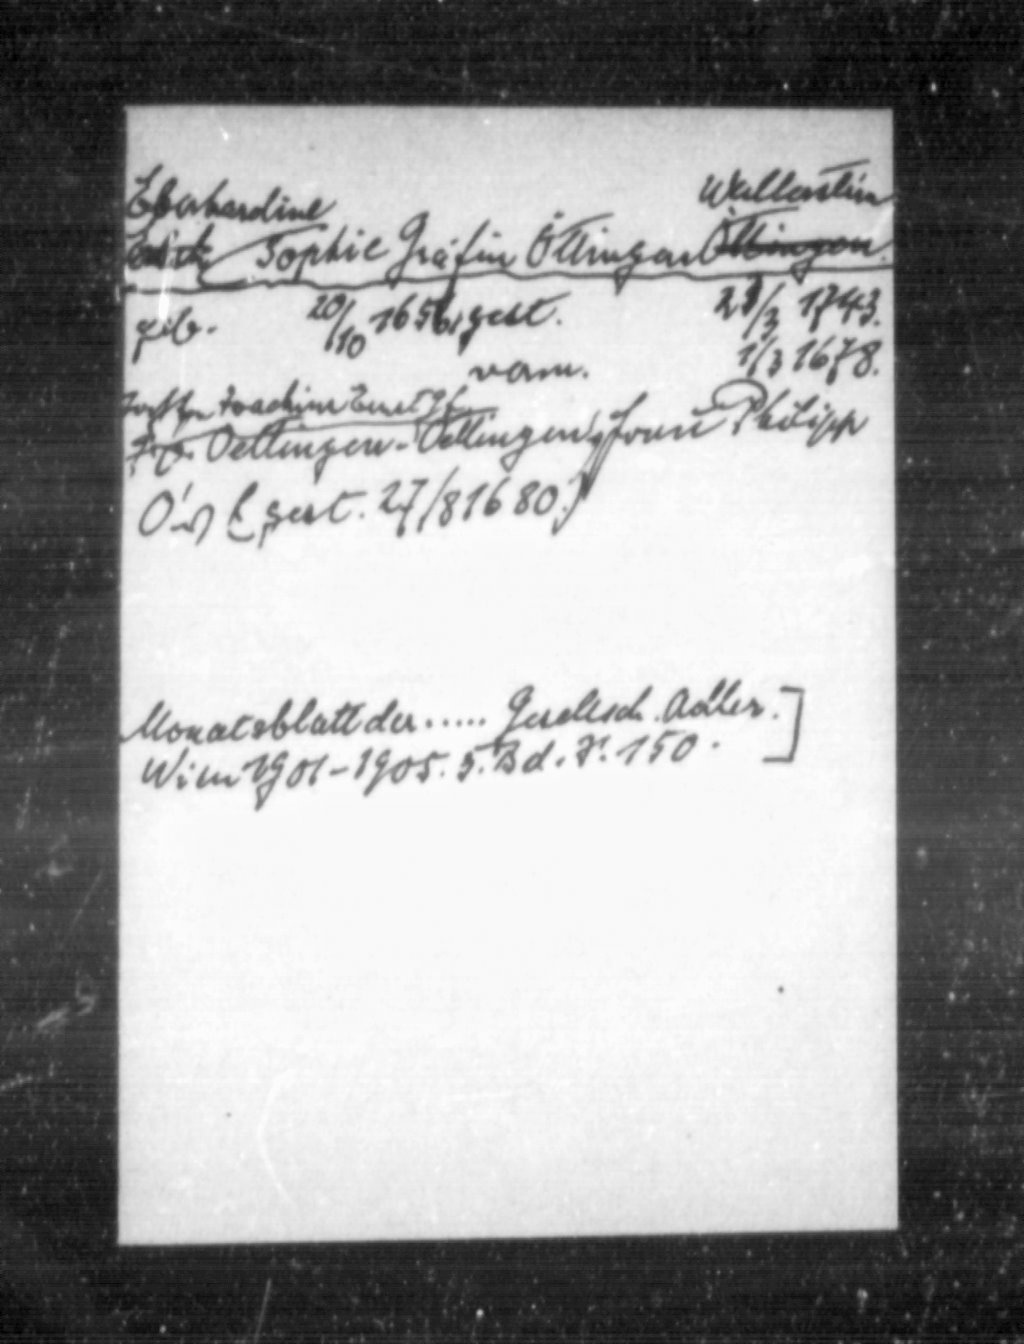 Eberhardine Wallerstein
Sophie Gräfin Öttingen Öttingen
geb. 20/10 1656, gest. 29/3 1743.
verm. 1/3 1678.
Joachim Ernst
Oettingen-Öttingen, Philipp
(gest. 27/8 1680.)
Monatsblatt der ..... Gesellsch. Adler.]
Wien 1901-1905. 5. Bd. S. 150.